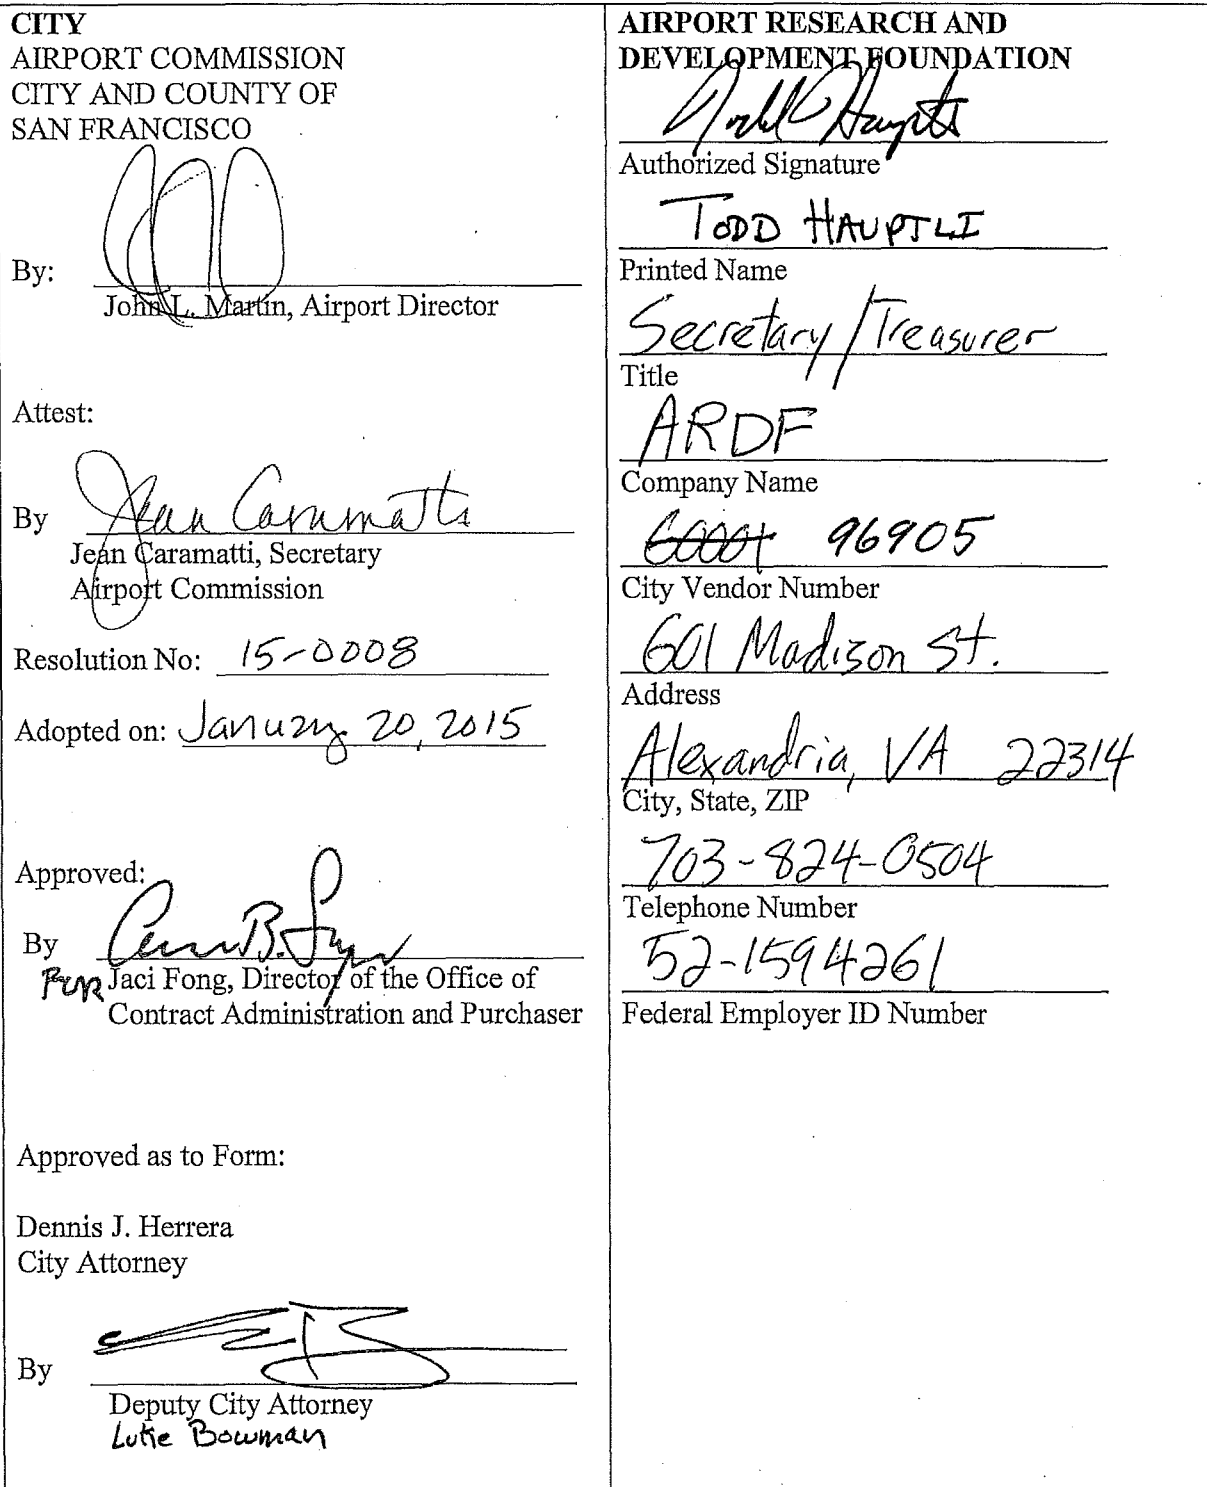 CITY
AIRPORT COMMISSION
CITY AND COUNTY OF
SAN FRANCISCO
By:
John L. Martin, Airport Director
Attest:
By Jean Caramatti
Jean Caramatti, Secretary
Airport Commission
Resolution No: 15-0008
Adopted on: January 20, 2015
Approved:
By
For Jaci Fong, Director of the Office of
Contract Administration and Purchaser
Approved as to Form:
Dennis J. Herrera
City Attorney
By
Deputy City Attorney
Luke Bowman
AIRPORT RESEARCH AND
DEVELOPMENT FOUNDATION
Authorized Signature
TODD HAUPTLI
Printed Name
Secretary/Treasurer
Title
ARDF
Company Name
96905
City Vendor Number
601 Madison St.
Address
Alexandria, VA 22314
City, State, ZIP
703-824-0504
Telephone Number
52-1594261
Federal Employer ID Number